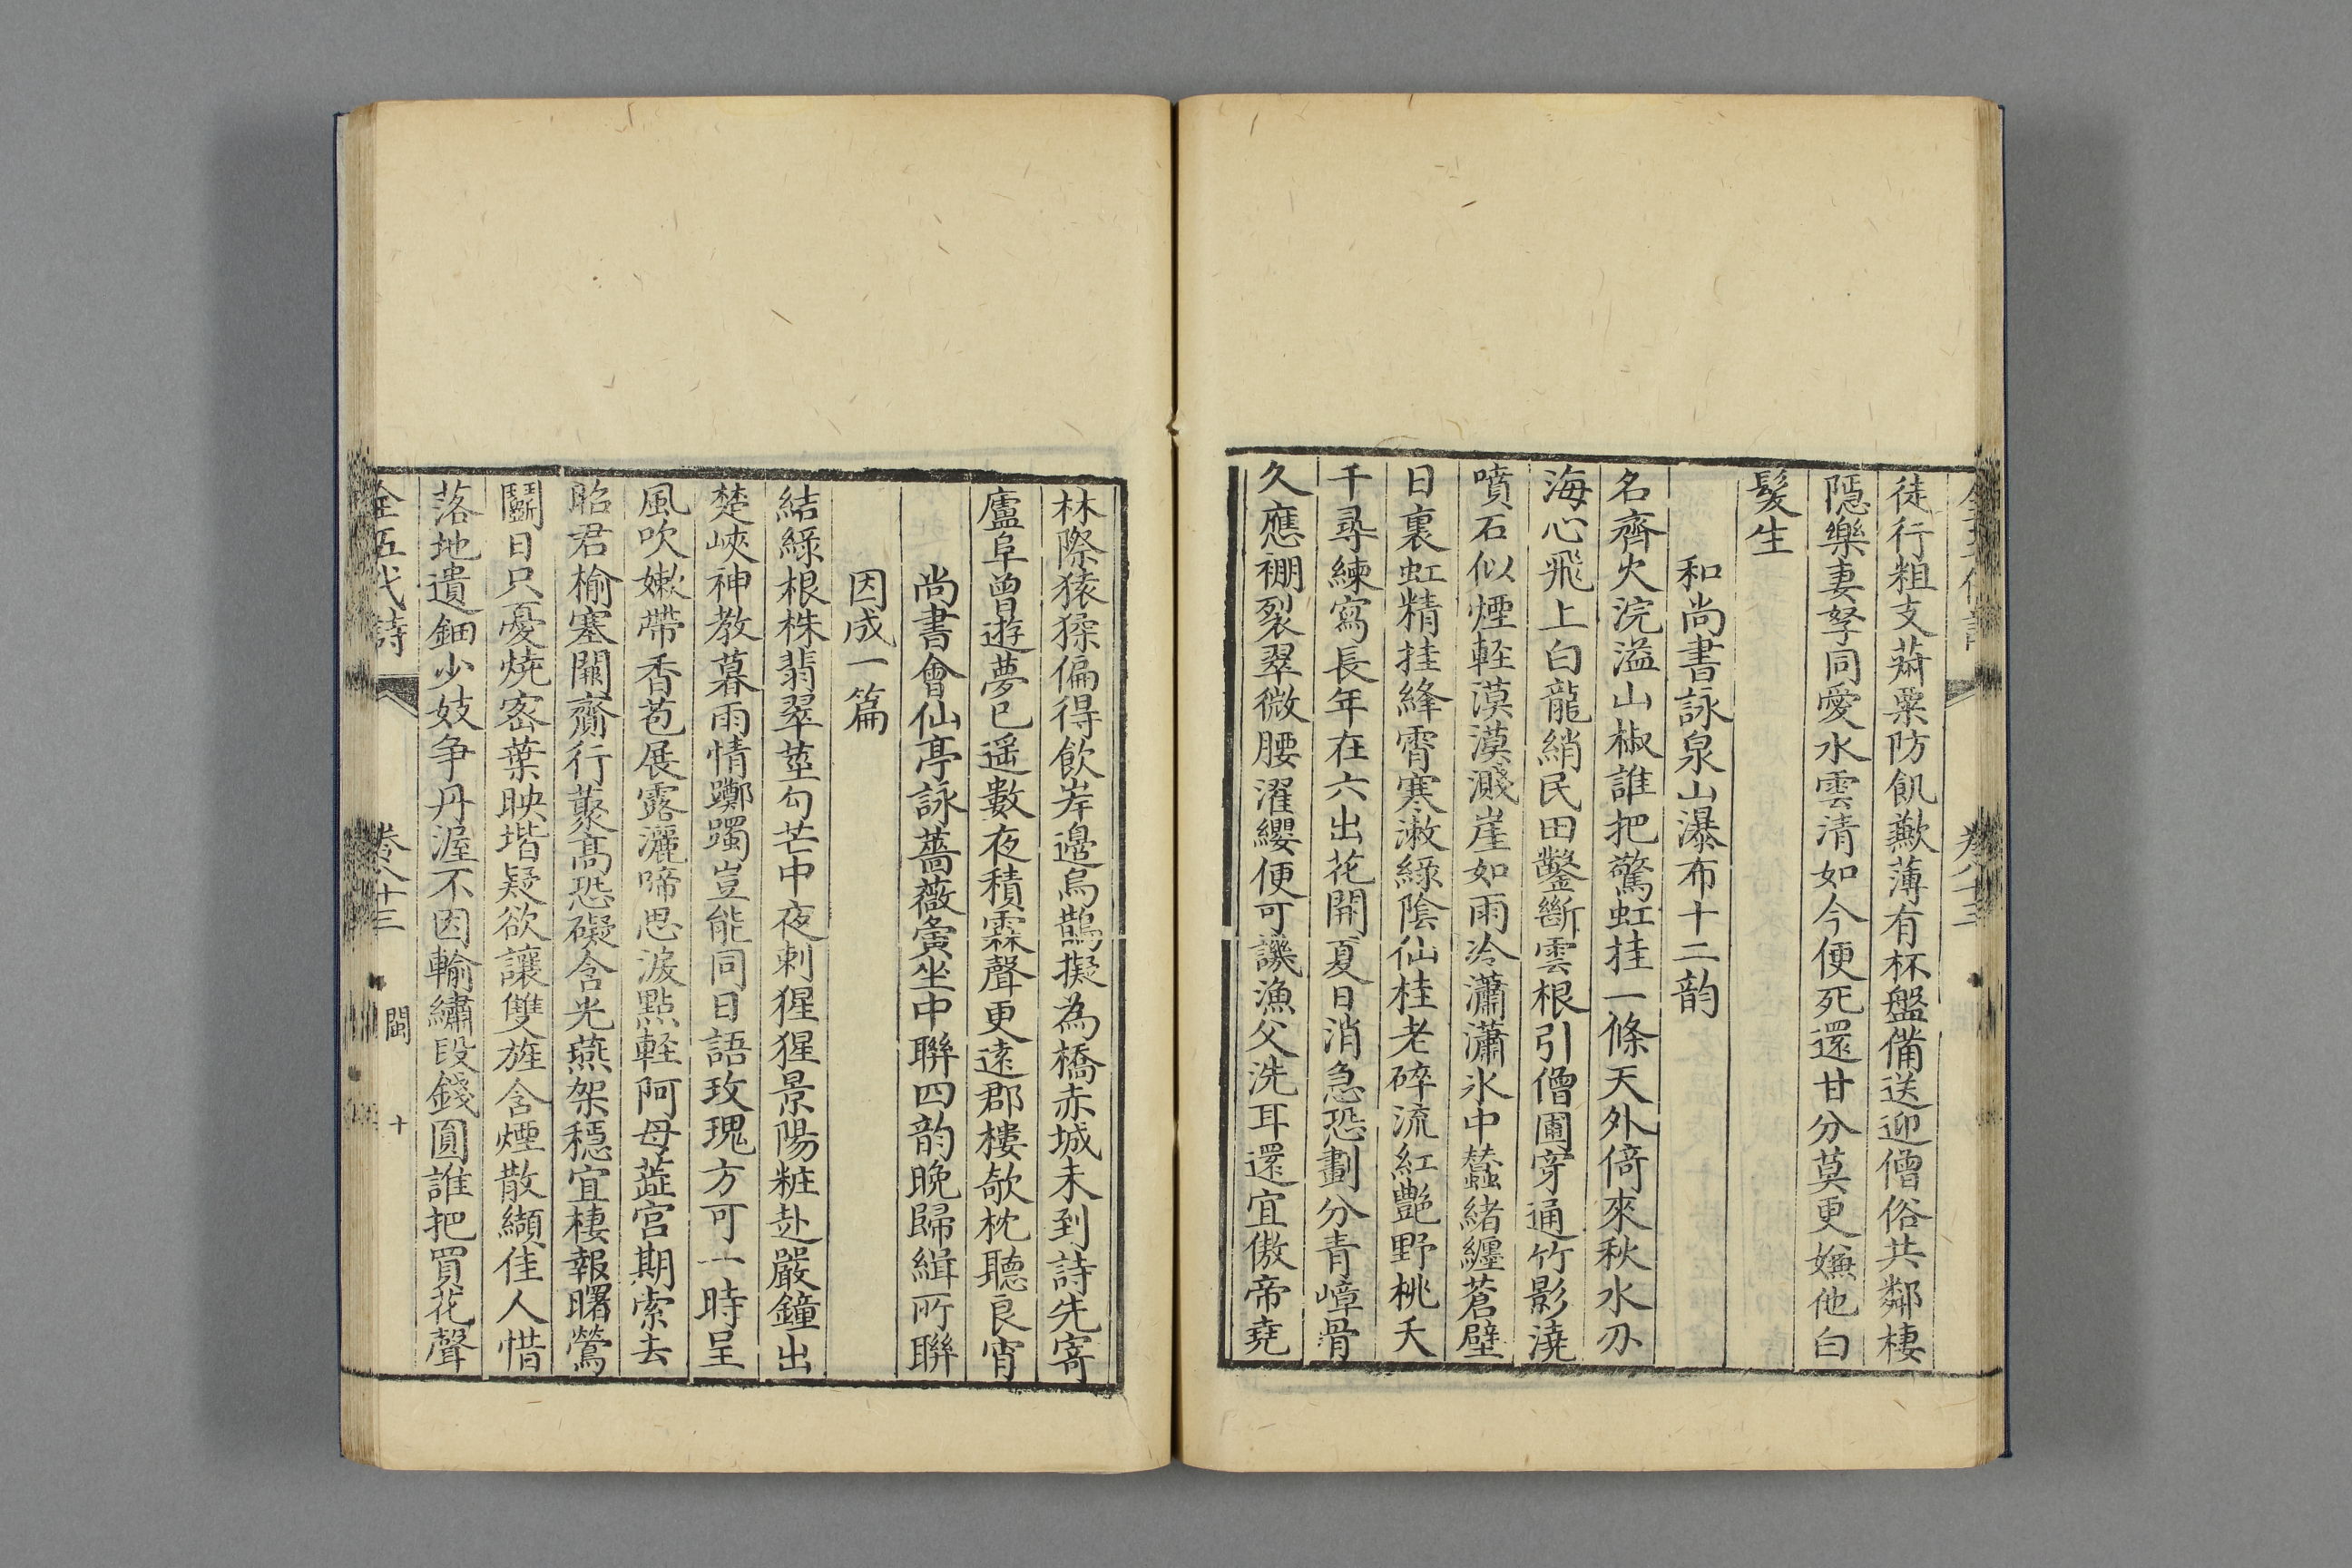 徒行粗支菽粟防飢歉薄有杯盤備送迎僧俗共鄰棲
隱樂妻孥同愛水雲清如今便死還甘分莫更嫌他白
髮生
和尚書詠泉山瀑布十二韵
名齊火浣溢山椒誰把驚虹挂一條天外倚來秋水刃
海心飛上白龍綃民田鑿斷雲根引僧圃穿通竹影澆
噴石似煙輕漠漠濺崖如雨冷瀟瀟水中蠶緒纏蒼壁
日裏虹精挂絳霄寒漱綠陰仙桂老碎流紅艷野桃夭
千尋練寫長年在六出花開夏日消急恐劃分青嶂骨
久應硼裂翠微腰濯纓便可譏漁父洗耳還宜傲帝堯
林際猿猱偏得飲岸邊烏鵲擬為橋赤城未到詩先寄
廬阜曾遊夢已遥數夜積霖聲更遠郡樓欹枕聽良宵
尚書會仙亭詠薔薇夤坐中聯四韵晚歸緝所聯
因成一篇
結綠根株翡翠莖句芒中夜刺猩猩景陽粧赴嚴鐘出
楚峽神教暮雨情躑躅豈能同日語玫瑰方可一時呈
風吹嫩帶香苞展露灑啼思淚點輕阿母蕋宮期索去
昭君榆塞闕齎行叢高恐礙含光燕架穩宜棲報曙鶯
鬭日只憂燒密葉映堦疑欲讓雙旌含煙散纈佳人惜
落地遺鈿少妓争丹渥不因輸繡段錢圓誰把買花聲
全五代詩
卷八十三
閩
十